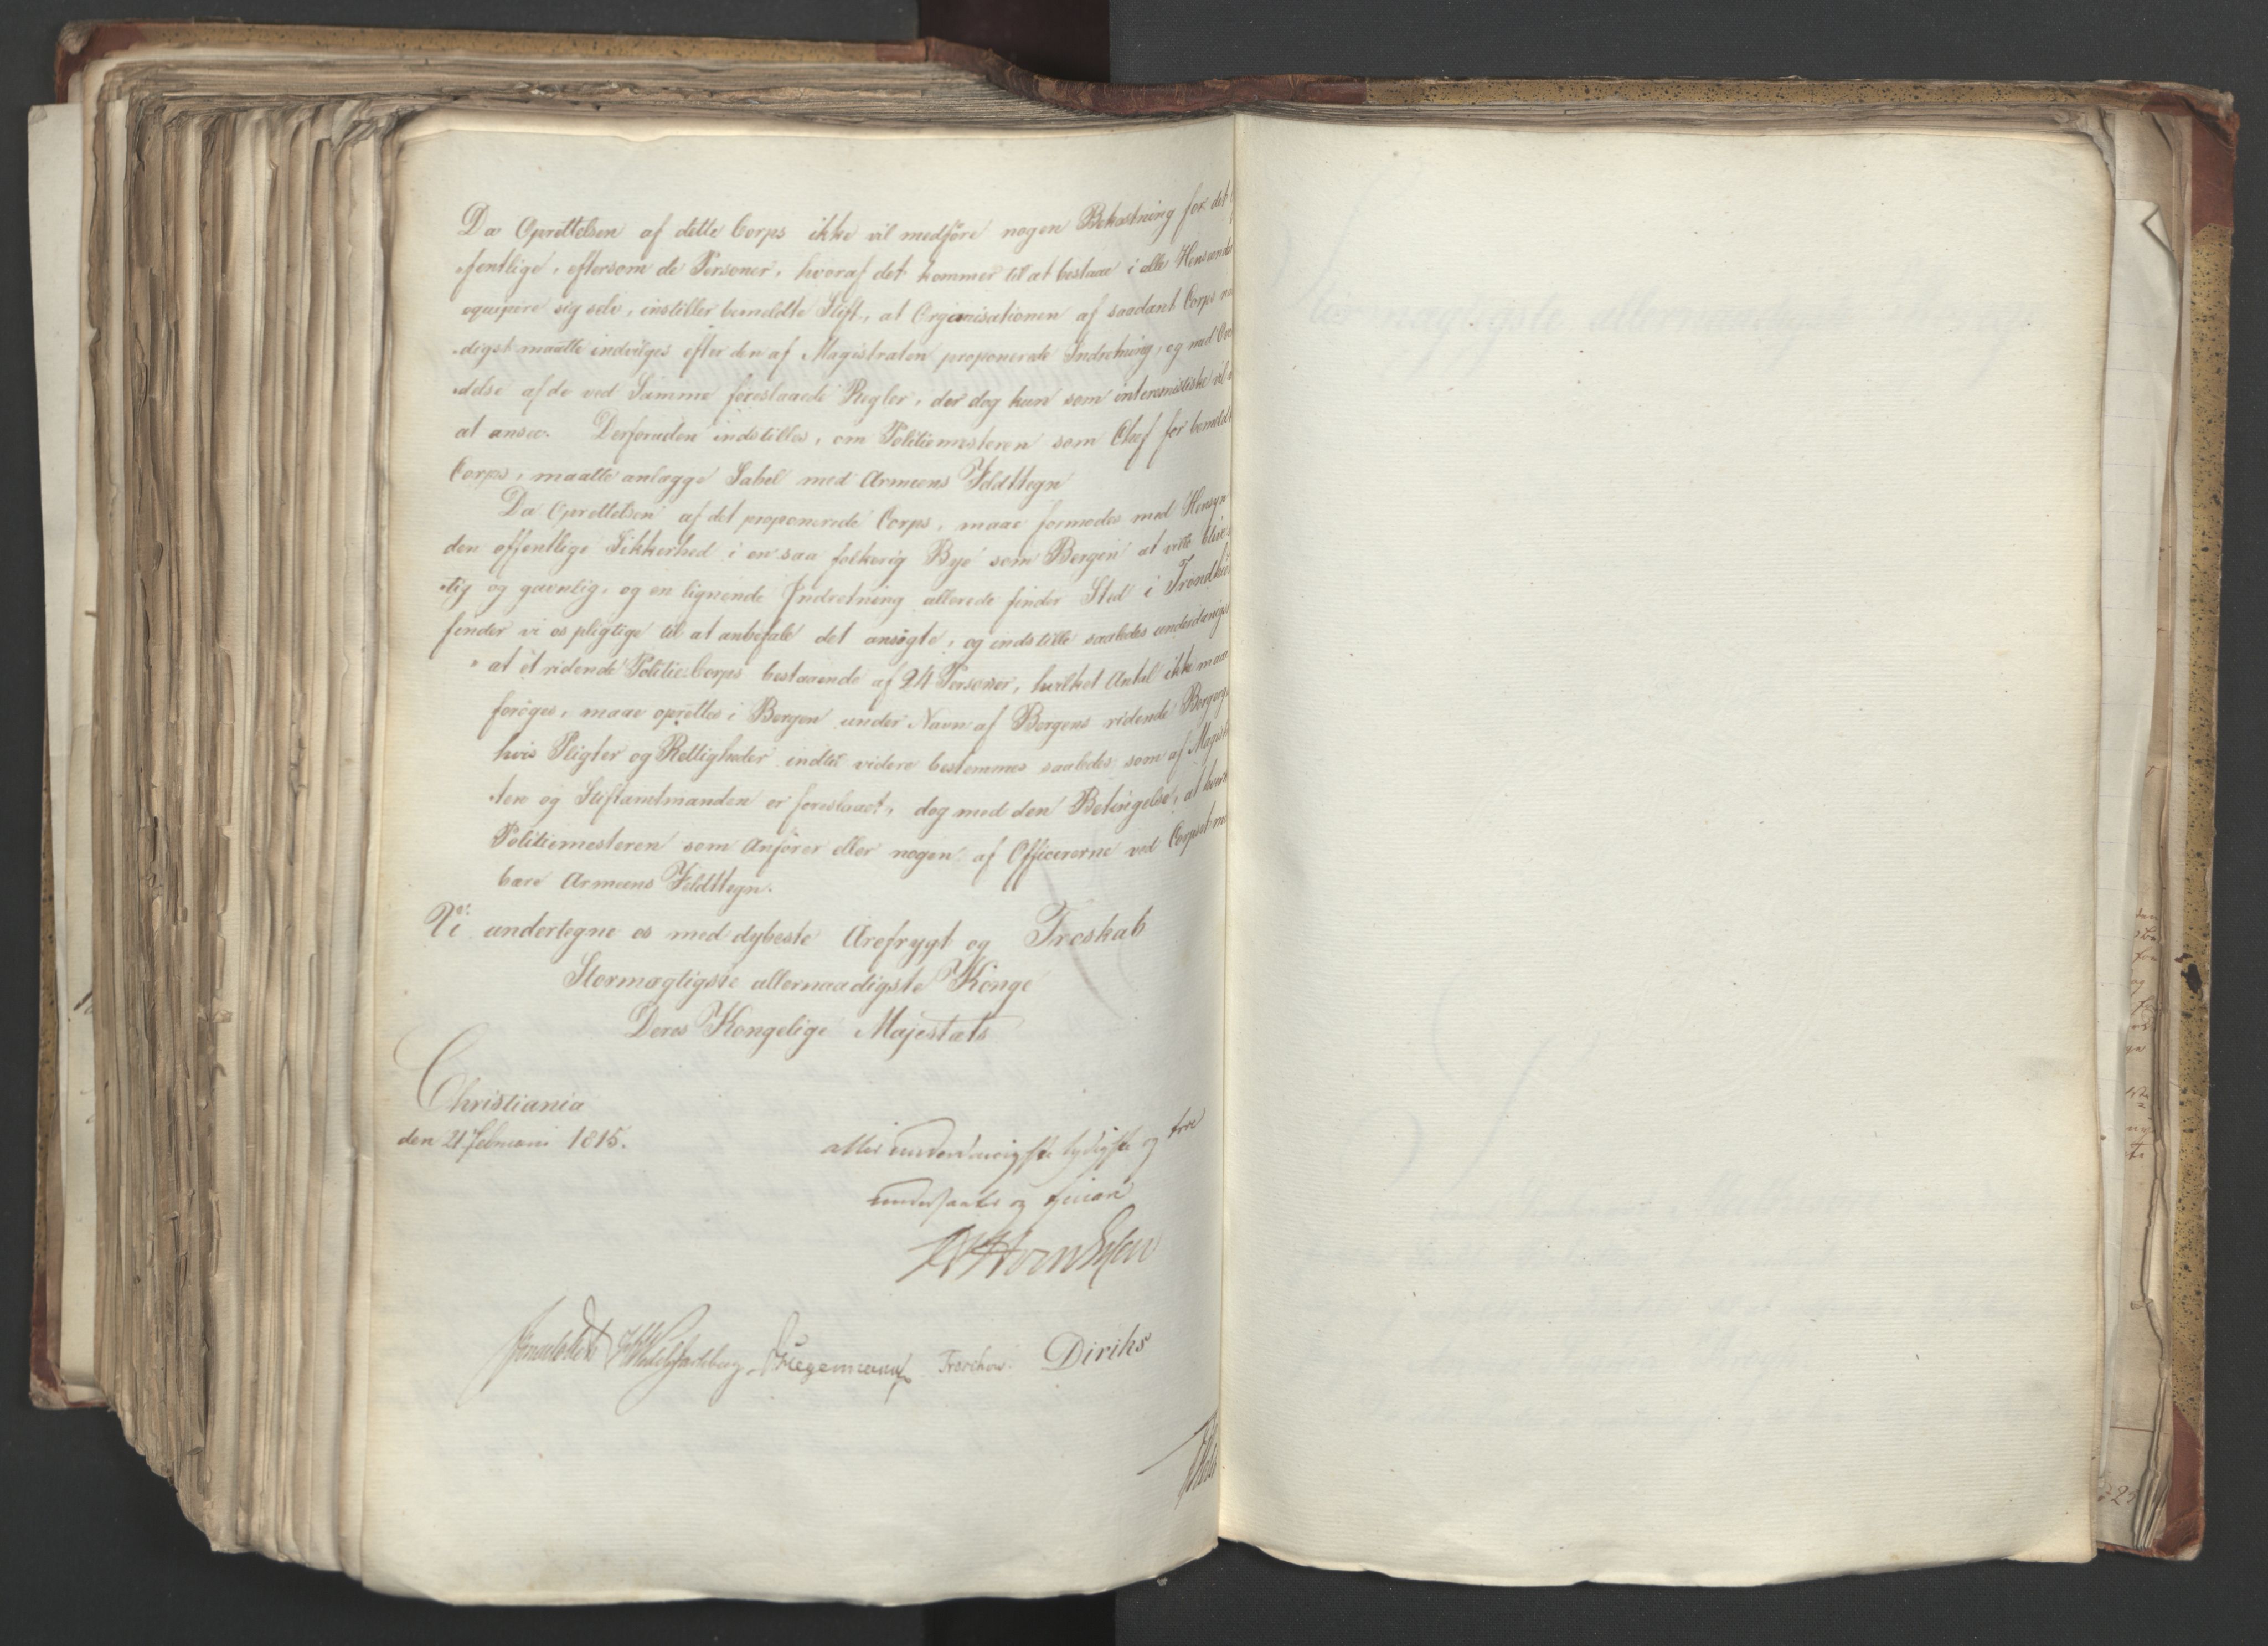 Da Oprettelsen af dette Corps ikke vil medføre nogen Bekostning for det
„fentlige, eftersom de Personer, hvoraf det kommer til at bestaae i alle Henseende
eqvipere sig selv, instiller bemeldte Stift, at Organisationen af saadant Corps
„digst maatte indvilges efter den af Magistraten proponerede Indretning, og med
„delse af de ved Samme foreslaaede Regler, der dog kun som interemistiske vil
at ansee. Desforuden indstilles, om Politiemesteren som Chef for bemeldte
Corps, maatte anlægge Sabel med Armeens Feldttegn
Da Oprettelsen af det proponerede Corps, maae formodes med Hensyn
den offentlige Sikkerhed i en saa folkerig Bye som Bergen at ville blive
„tig og gavnlig, og en lignende Indretning allerede finder Sted i Trondh
finder vi os pligtige til at anbefale det ansøgte, og indstille saaledes underdanigst
„at et ridende Politie-Corps bestaaende af 24 Personer, hvilket Antal ikke maae
forøges, maae oprettes i Bergen under Navn af Bergens ridende Borger
hvis Pligter og Rettigheder indtil videre bestemmes saaledes som af Magist
„ten og Stiftamtmanden er foreslaaet, dog med den Betingelse, at hver
Politiemesteren som Anfører eller nogen af Officererne ved Corpset
bære Armeens Feldttegn.
Vi undertegne os med dybeste Ærefrygt og Troskab
Stormægtigste allernaadigste Konge
Deres Kongelige Majestæts
Christiania
den 21 Februarii 1815.
allerunderdanigste lydigste og troe
undersaatter og tjenere
Sommerhielm Wedel Jarlsberg Hegermann Treschow. Diriks